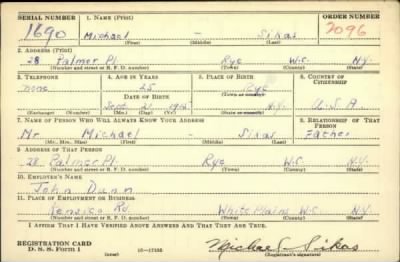 SERIAL NUMBER 1. NAME (Print) ORDER NUMBER
1690 Michael - Sikas 2096
(First) (Middle) (Last)
2. ADDRESS (Print)
28 Palmer Pl. Rye W.C. N.Y.
(Number and street or R. F. D. number) (Town) (County) (State)
3. TELEPHONE 4. AGE IN YEARS 5. PLACE OF BIRTH 6. COUNTRY OF CITIZENSHIP
none 25 Rye
DATE OF BIRTH (Town or county)
Sept. 21 1915 N.Y. U.S.A
(Exchange) (Number) (Mo.) (Day) (Yr.) (State or country)
7. NAME OF PERSON WHO WILL ALWAYS KNOW YOUR ADDRESS 8. RELATIONSHIP OF THAT PERSON
Mr. Michael - Sikas Father
(Mr., Mrs., Miss) (First) (Middle) (Last)
9. ADDRESS OF THAT PERSON
28 Palmer Pl. Rye W.C. N.Y.
(Number and street or R. F. D. number) (Town) (County) (State)
10. EMPLOYER'S NAME
John Dunn
11. PLACE OF EMPLOYMENT OR BUSINESS
Kensico Rd. White Plains W.C. N.Y.
(Number and street or R. F. D. number) (Town) (County) (State)
I AFFIRM THAT I HAVE VERIFIED ABOVE ANSWERS AND THAT THEY ARE TRUE.
REGISTRATION CARD
D. S. S. Form 1 (over) 16-17105 Michael Sikas
(Registrant's signature)